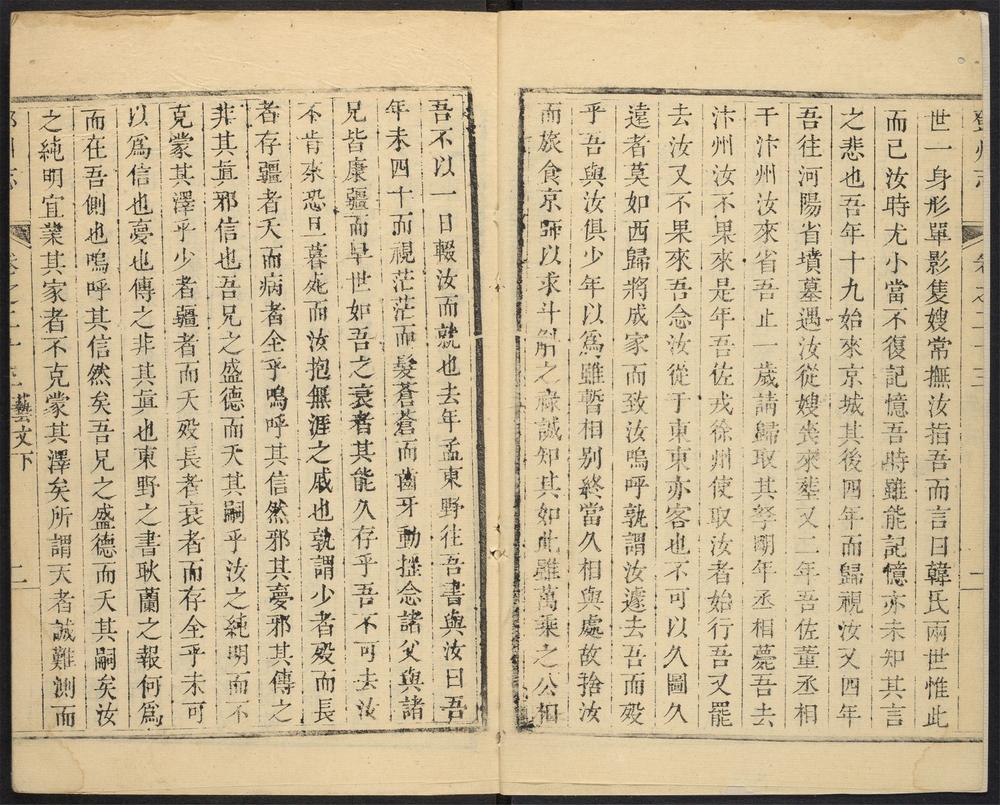 世一身形單影隻嫂常撫汝指吾而言曰韓氏兩世惟此
而已汝時尤小當不復記憶吾時雖能記憶亦未知其言
之悲也吾年十九始來京城其後四年而歸視汝又四年
吾往河陽省墳墓遇汝從嫂喪來塟又二年吾佐董丞相
于汴州汝來省吾止一歲請歸取其孥明年丞相薨吾去
汴州汝不果來是年吾佐戎徐州使取汝者始行吾又罷
去汝又不果來吾念汝從于東東亦客也不可以久圖久
遠者莫如西歸將成家而致汝嗚呼孰謂汝遽去吾而歿
乎吾與汝俱少年以爲雖暫相别終當久相與處故捨汝
而旅食京師以求斗斛之祿誠知其如此雖萬乘之公相
吾不以一日輟汝而就也去年孟東野往吾書與汝曰吾
年未四十而視茫茫而髮蒼蒼而齒牙動搖念諸父與諸
兄皆康疆而早世如吾之衰者其能久存乎吾不可去汝
不肯來恐旦暮死而汝抱無涯之戚也孰謂少者歿而長
者存疆者夭而病者全乎嗚呼其信然邪其夢邪其傳之
非其眞邪信也吾兄之盛德而夭其嗣乎汝之純明而不
克蒙其澤乎少者疆者而夭歿長者衰者而存全乎未可
以爲信也夢也傳之非其眞也東野之書耿蘭之報何爲
而在吾側也嗚呼其信然矣吾兄之盛德而夭其嗣矣汝
之純明宜業其家者不克蒙其澤矣所謂天者誠難測而
藝文下 二